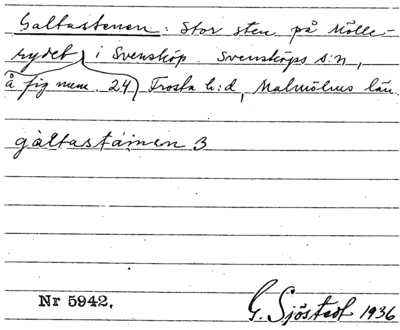 Galtastenen: Stor sten på Mölle-
rydet i Svensköp. Svensköps s:n,
å fig num. 24) Frosta h:d, Malmöhus län.
galtastäinen 3
Nr 5942.
G. Sjöstedt 1936